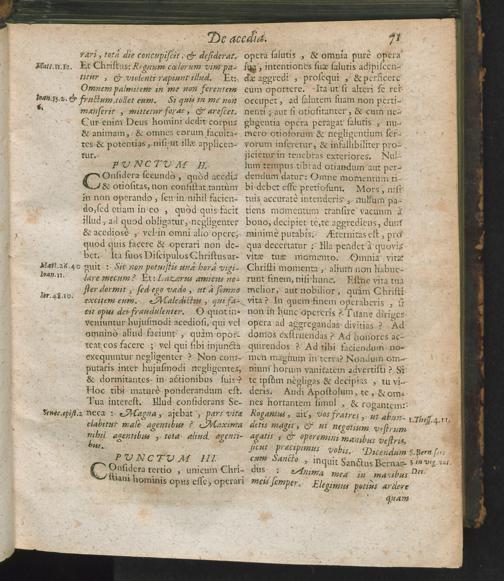 De acedia. 71
rari, totâ die concupiscit, & desiderat.
Matt. 11. 12. Et Christus: Regnum cœlorum vim patitur, & violenti rapiunt illud. Et:
Omnem palmitem in me non ferentem
Ioan. 15. 2. & fructum, tollet eum. Si quis in me non
6. manserit, mittetur foras, & arescet.
Cur enim Deus homini dedit corpus
& animam, & omnes eorum facultates & potentias, nisi ut illæ applicentur.
PUNCTUM II.
Considera secundò, quòd acedia
& otiositas, non consistat tantùm
in non operando, seu in nihil faciendo, sed etiam in eo, quòd quis facit
illud, ad quod obligatur, negligenter
& acediosè, vel in omni alio opere,
quod quis facere & operari non debet. Ita suos Discipulos Christus arguit:
Matt. 26. 40 Sic non potuistis unâ horâ vigilare mecum?
Ioan. 11. Et: Lazarus amicus noster dormit, sed ego vado, ut à somno
excitem eum. Maledictus, qui facit
Ier. 48. 10. opus Dei fraudulenter. O quot inveniuntur hujusmodi acediosi, qui vel
omnino aliud faciunt, quàm oporteat eos facere; vel qui sibi injuncta
exequuntur negligenter? Non computaris inter hujusmodi negligentes,
& dormitantes in actionibus suis?
Hoc tibi maturè ponderandum est.
Tua interest. Illud considerans Seneca:
Senec. epist. 1 Magna, ajebat, pars vitæ
elabitur male agentibus? Maxima
nihil agentibus, tota aliud agentibus.
PUNCTUM III.
Considera tertiò, unicum Christiani hominis opus esse, operari
opera salutis, & omnia purè opera
sua, intentiones suæ salutis adipiscendæ aggredi, prosequi, & perficere
eum oportere. Ita ut si alteri se rei
occupet, ad salutem suam non pertinenti; aut si otiositanter, & cum negligentia opera peragat salutis, numero otiosorum & negligentium servorum inseretur, & infallibiliter projicietur in tenebras exteriores. Nullum tempus tibi ad otiandum aut perdendum datur: Omne momentum tibi debet esse pretiosum. Mors, nisi
vis accuratè intendere, nullum patiens momentum transire vacuum à
bono, decipiet te, te aggrediens, dum
minimè putabis. Æternitas est, pro
qua decertatur: Illa pendet à quovis
vitæ tuæ momento. Omnia vitæ
Christi momenta, alium non habuerunt finem, nisi hunc. Estne vita tua
melior, aut nobilior, quàm Christi
vita? In quem finem operaberis, si
non in hunc opereris? Tuane diriges
opera ad aggregandas divitias? Ad
domos exstruendas? Ad honores acquirendos? Ad tibi faciendum nomen magnum in terra? Nondum omnium horum vanitatem advertisti? Si
te ipsum negligas & decipias, tu videris. Audi Apostolum, te, & omnes hortantem simul, & rogantem:
Rogamus, ait, vos fratres, ut abun-
1. Thess. 4. 11. detis magis, & ut negotium vestrum
agatis, & operemini manibus vestris,
sicut præcipimus vobis. Dicendum
S. Bern ser. cum Sancto, inquit Sanctus Bernardus:
5 in vig. nat. Dni. Anima mea in manibus
meis semper. Elegimus potiùs ardere
quam